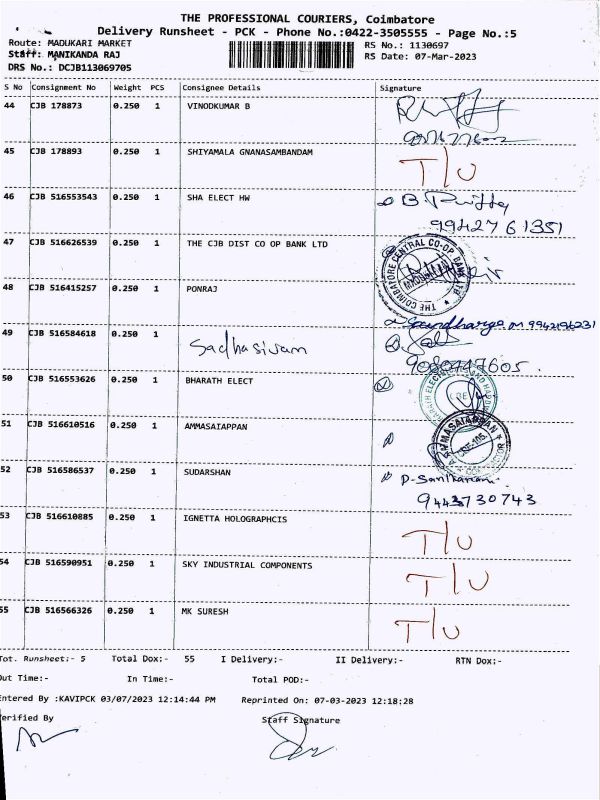 THE PROFESSIONAL COURIERS, Coimbatore
Delivery Runsheet - PCK - Phone No.:0422-3505555 - Page No.:5
Route: MADUKARI MARKET
RS No.: 1130697
Staff: MANIKANDA RAJ
RS Date: 07-Mar-2023
DRS No.: DCJB113069705
S No Consignment No Weight PCS Consignee Details Signature
44 CJB 178873 0.250 1 VINODKUMAR B
45 CJB 178893 0.250 1 SHIYAMALA GNANASAMBANDAM T/U
46 CJB 516553543 0.250 1 SHA ELECT HW B
9942761351
47 CJB 516626539 0.250 1 THE CJB DIST CO OP BANK LTD
THE COIMBATORE CENTRAL CO-OP BANK LTD
48 CJB 516415257 0.250 1 PONRAJ
9942196231
49 CJB 516584618 0.250 1 Sadhasivam
50 CJB 516553626 0.250 1 BHARATH ELECT
51 CJB 516610516 0.250 1 AMMASAIAPPAN
AMMASAIAPPAN
52 CJB 516586537 0.250 1 SUDARSHAN
9443730743
53 CJB 516610885 0.250 1 IGNETTA HOLOGRAPHCIS T/U
54 CJB 516590951 0.250 1 SKY INDUSTRIAL COMPONENTS T/U
55 CJB 516566326 0.250 1 MK SURESH T/U
Tot. Runsheet:- 5 Total Dox:- 55 I Delivery:- II Delivery:- RTN Dox:-
Out Time:- In Time:- Total POD:-
Entered By :KAVIPCK 03/07/2023 12:14:44 PM Reprinted On: 07-03-2023 12:18:28
Verified By Staff Signature